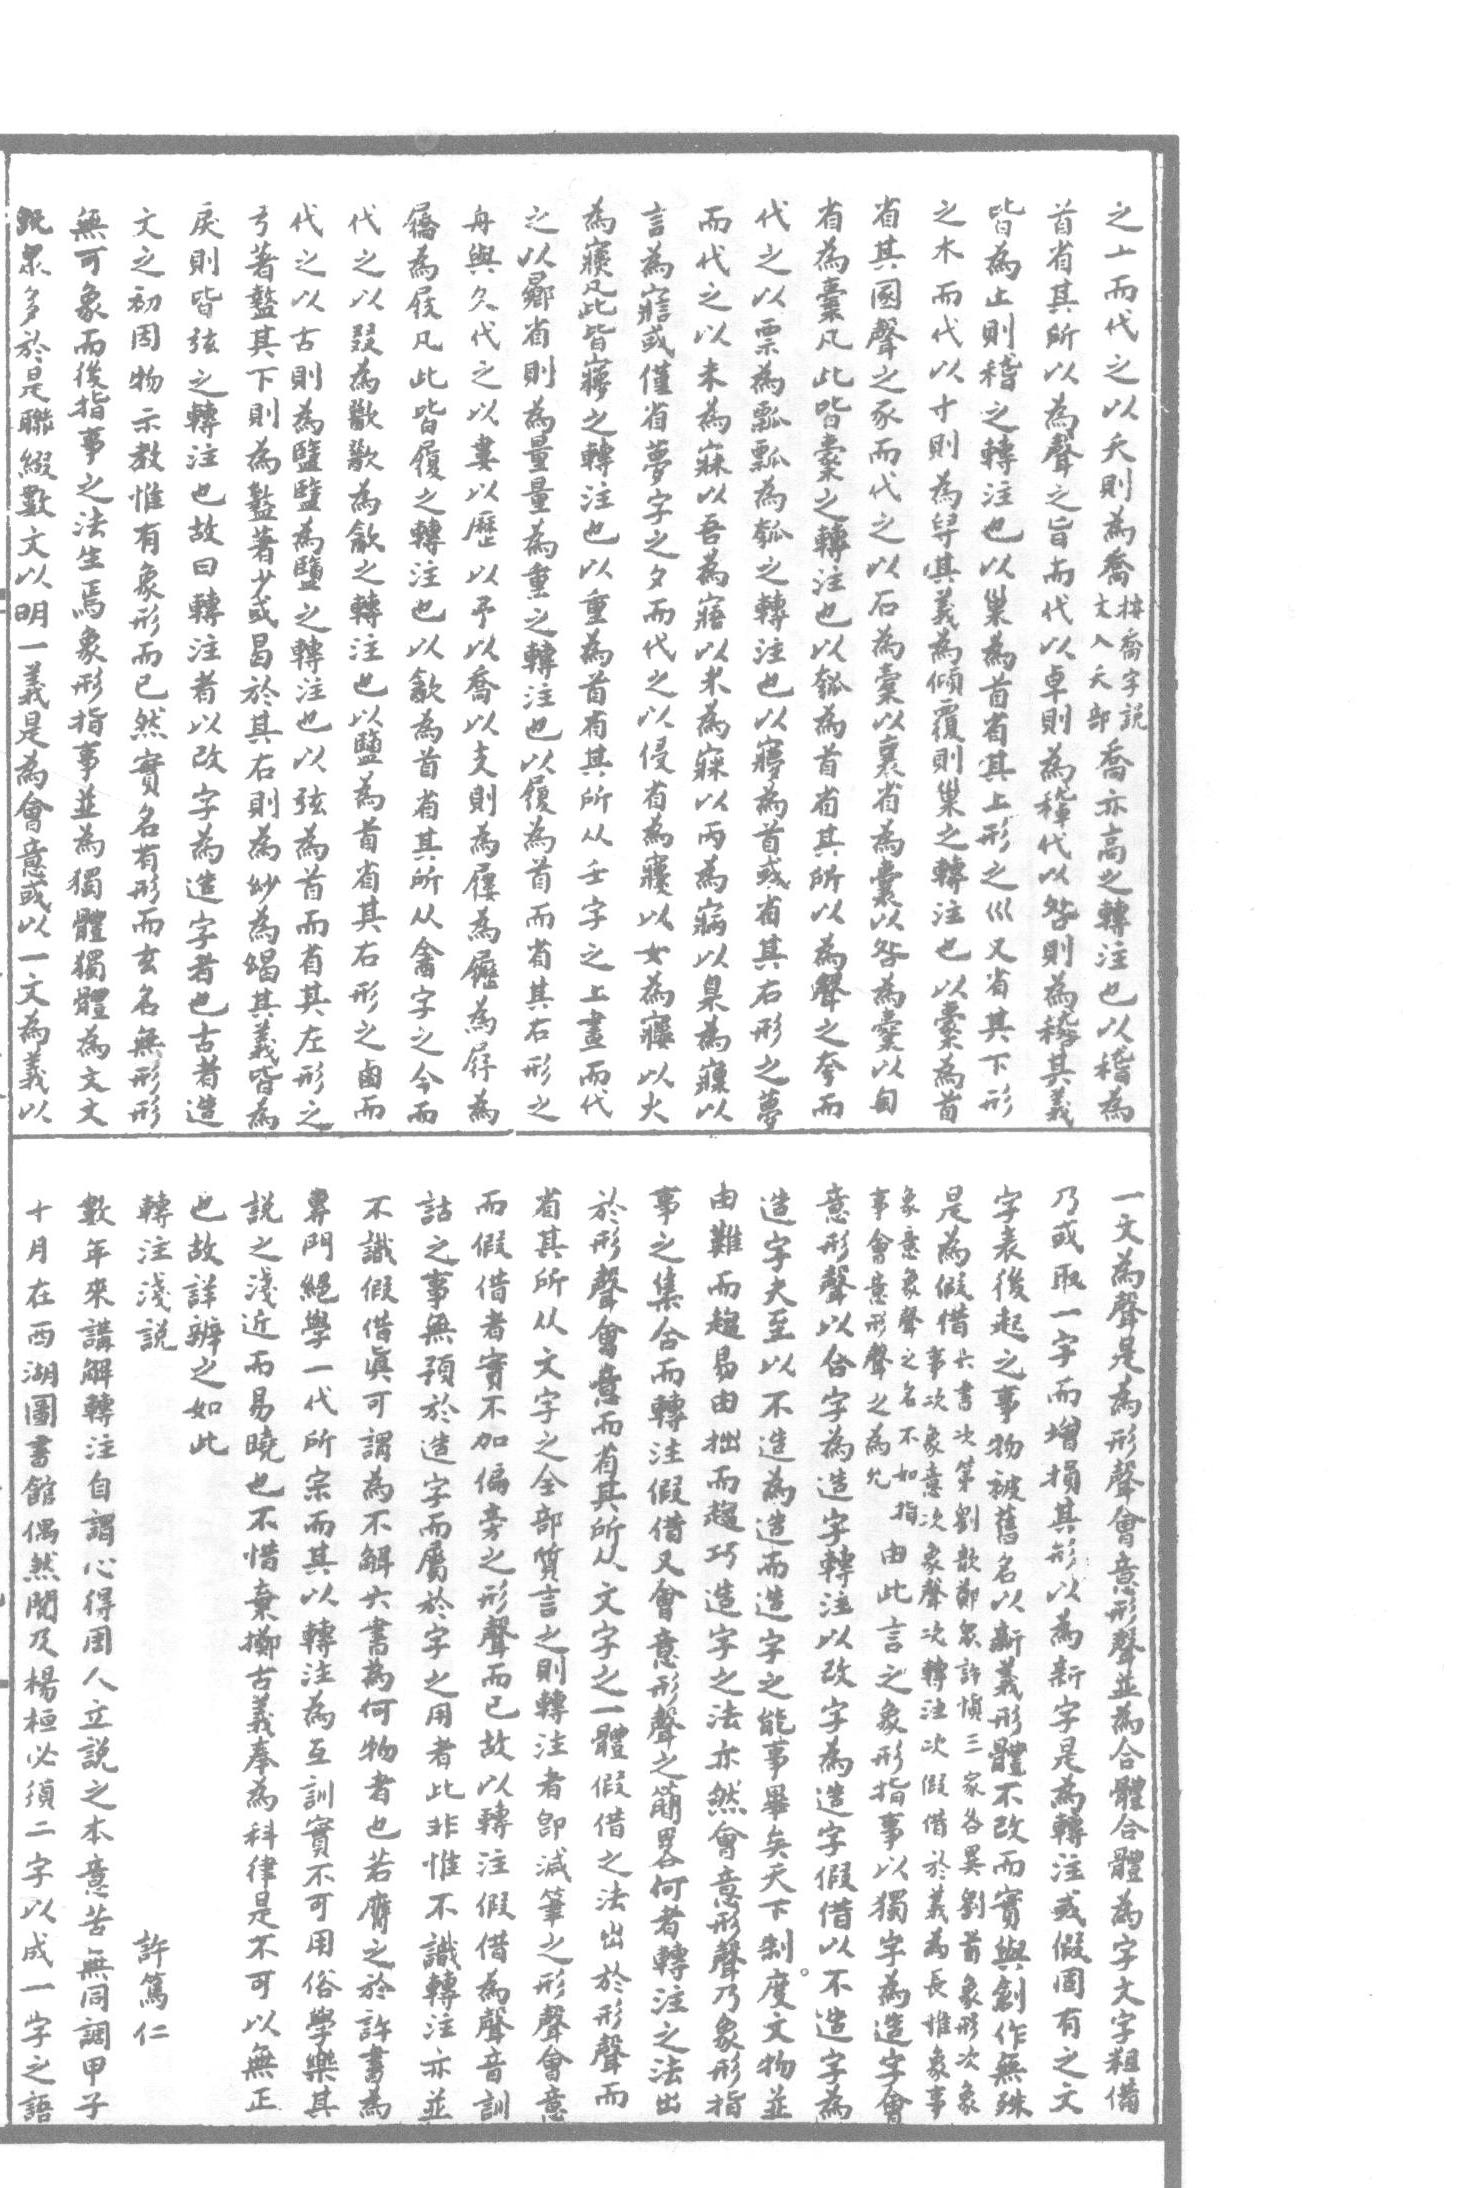 之上而代之以夭則為喬按喬字説文入夭部喬亦高之轉注也以稽為
首省其所以為聲之旨而代以卓則為𥡧代以咎則為䅵其義
皆為止則稽之轉注也以巢為首省其上形之巛又省其下形
之木而代以寸則為㝵其義為傾覆則巢之轉注也以㯻為首
省其圂聲之豕而代之以石為橐以襄省為囊以咎為櫜以匋
省為㯱凡此皆㯻之轉注也以瓠為首省其所以為聲之夸而
代之以票為瓢瓢為瓠之轉注也以㝱為首或省其右形之夢
而代之以未為寐以吾為寤以米為𥧌以丙為寎以臬為寱以
言為𡪢或僅省夢字之夕而代之以侵省為寢以女為𡫦以火
為𡫒凡此皆㝱之轉注也以重為首省其所从壬字之上畫而代
之以曏省則為量量為重之轉注也以履為首而省其右形之
舟與夂代之以婁以歷以予以喬以支則為屨為𡳐為㞛為
屩為屐凡此皆履之轉注也以歙為首省其所从禽字之今而
代之以叕為歠歠為歙之轉注也以鹽為首省其右形之鹵而
代之以古則為盬盬為鹽之轉注也以弦為首而省其左形之
弓著盭其下則為盭著少或曷於其右則為玅為䊠其義皆為
戾則皆弦之轉注也故曰轉注者以改字為造字者也古者造
文之初因物示教惟有象形而已然實名有形而玄名無形形
無可象而後指事之法生焉象形指事並為獨體獨體為文文
既眾多於是聯綴數文以明一義是為會意或以一文為義以
一文為聲是為形聲會意形聲並為合體合體為字文字粗備
乃或取一字而增損其形以為新字是為轉注或假固有之文
字表後起之事物被舊名以新義形體不改而實與創作無殊
是為假借六書次第劉歆鄭眾許慎三家各異劉首象形次象事次象意次象聲次轉注次假借於義為長惟象事
象意象聲之名不如指事會意形聲之為允由此言之象形指事以獨字為造字會
意形聲以合字為造字轉注以改字為造字假借以不造字為
造字夫至以不造為造而造字之能事畢矣天下制度文物並
由難而趨易由拙而趨巧造字之法亦然會意形聲乃象形指
事之集合而轉注假借又會意形聲之簡畧何者轉注之法出
於形聲會意而省其所从文字之一體假借之法出於形聲而
省其所从文字之全部質言之則轉注者即減筆之形聲會意
而假借者實不加偏旁之形聲而已故以轉注假借為聲音訓
詁之事無預於造字而屬於字之用者此非惟不識轉注亦並
不識假借真可謂為不解六書為何物者也若膺之於許書為
專門絕學一代所宗而其以轉注為互訓實不可用俗學樂其
説之淺近而易曉也不惜棄擲古義奉為科律是不可以無正
也故詳辨之如此
轉注淺説 許篤仁
數年來講解轉注自謂心得因人立説之本意苦無同調甲子
十月在西湖圖書館偶然閱及楊桓必須二字以成一字之語